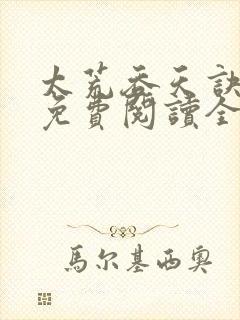 太荒吞天訣
免費閱讀全
馬尔基西奧